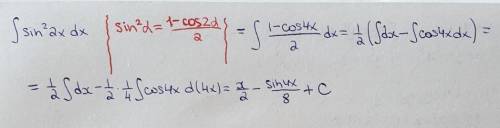 ∫sin²2x dx {sin²α = (1-cos2α)/2} = ∫ (1-cos4x)/2 dx = 1/2 (∫dx - ∫cos4x dx) =
= 1/2 ∫dx - 1/2 · 1/4 ∫cos4x d(4x) = x/2 - sin4x/8 + C